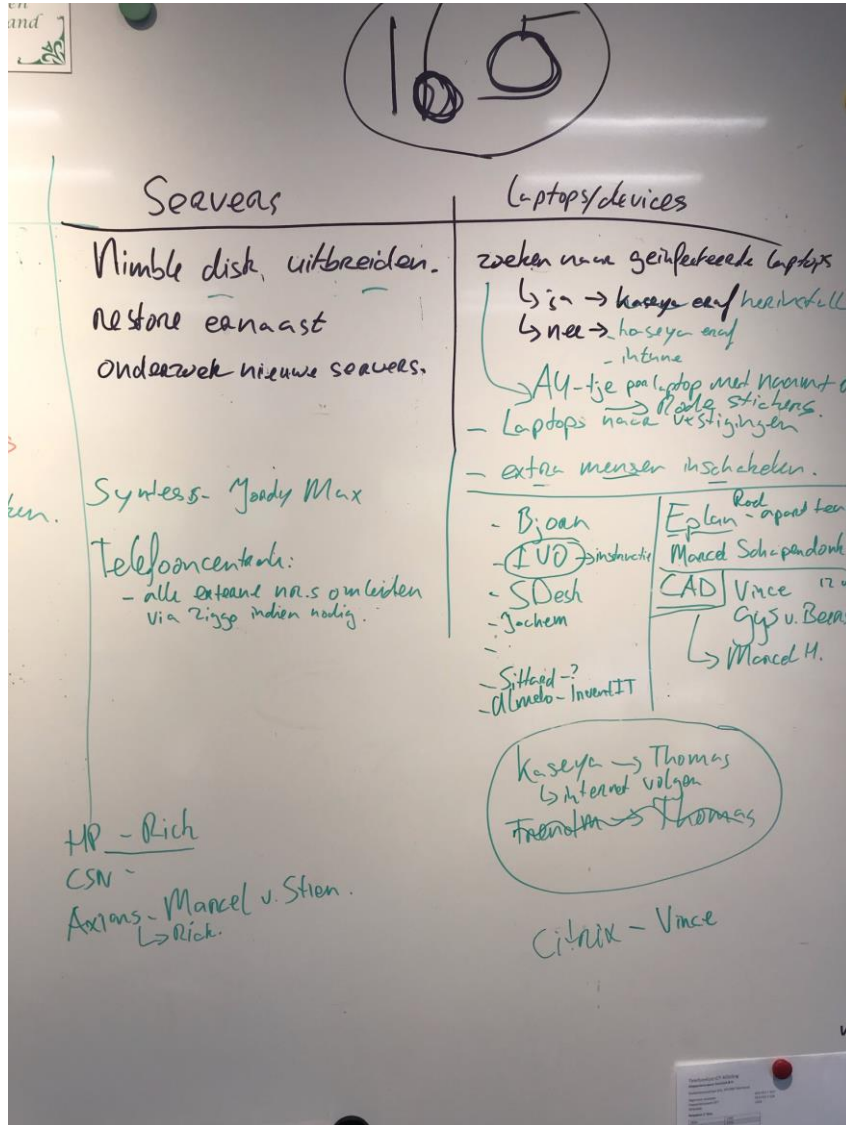 en
and
165
Servers
Nimble disk, uitbreiden.
restore ernaast
onderzoek nieuwe servers.
Syntess - Jordy Max
Telefooncentrale:
- alle externe nrs omleiden
via ziggo indien nodig.
HP - Rich
CSN -
Axians - Marcel v. Stien.
↳ Rich.
Laptops/devices
zoeken naar geïnfecteerde laptops
↳ ja → kaseya eraf herinstall
↳ nee → kaseya eraf
- intune
A4-tje per laptop met naam
→ Rode stickers.
- Laptops naar vestigingen
- extra mensen inschakelen.
- Bjorn
- IVO → instructie
- SDesk
- Jochem
-
- Sittard - ?
- Almelo - InventIT
Eplan - apart
Marcel Schapendonk
CAD Vince
Gijs v.
↳ Marcel H.
Kaseya → Thomas
↳ internet volgen
→ Thomas
Citrix - Vince